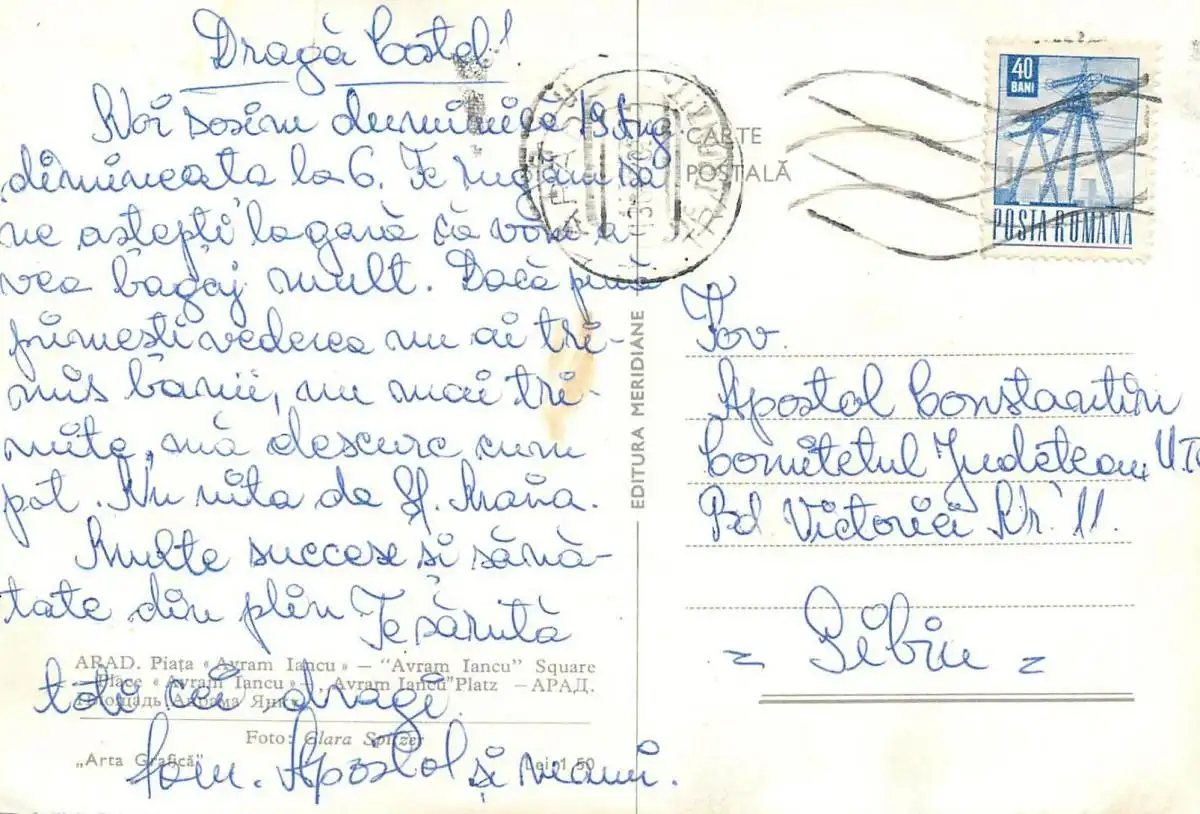 Dragă Costel!
Noi sosim duminică 19 Aug.
dimineata la 6. Te rugăm să
ne aștepti la gară că vom a-
vea bagaj mult. Dacă pînă
primești vederea nu ai tri-
mis banii, nu mai tri-
mite, mă descurc cum
pot. Nu uita de Sf. Maria.
Multe succese și sănă-
tate din plin Te sărută
toti cei dragi.
Fam. Apostol și neamu.
ARAD. Piața « Avram Iancu » — "Avram Iancu" Square
Place « Avram Iancu » — „Avram Iancu" Platz — АРАД.
Площадь Аврама Янку
Foto: Clara Spitzer
„Arta Grafică"
Lei 1,50
EDITURA MERIDIANE
CARTE
POȘTALĂ
40
BANI
POSTA ROMANA
Tov.
Apostol Constantin
Comitetul Judetean
Bd Victoriei Nr. 11.
= Sibiu =